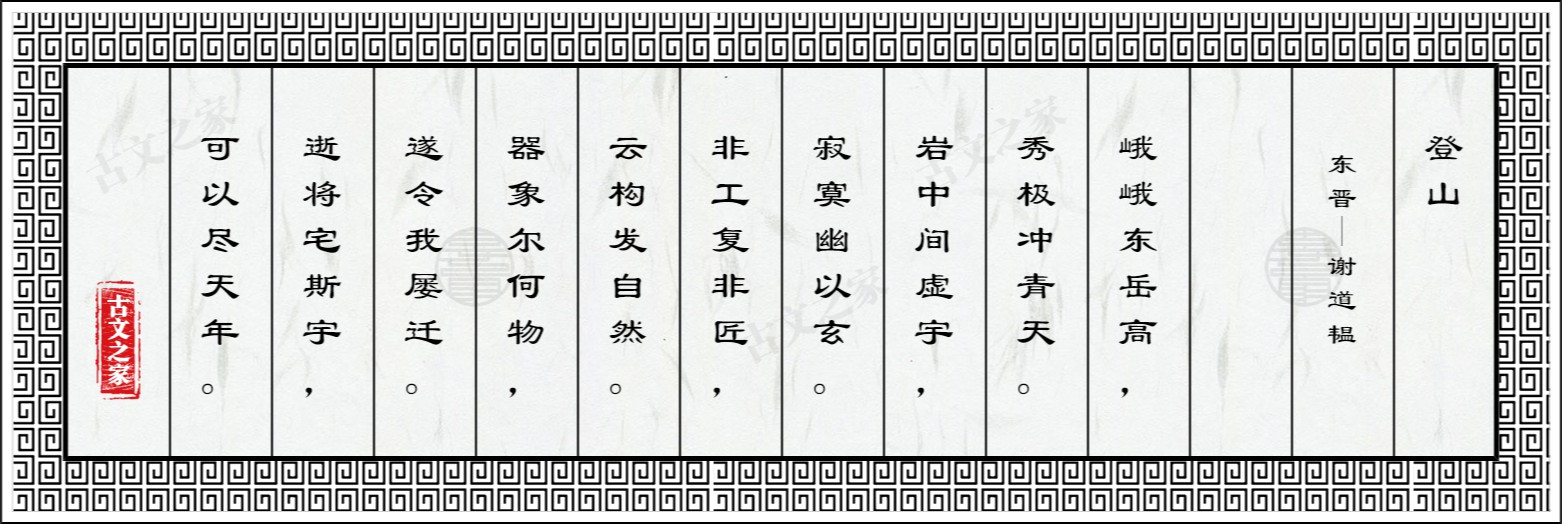 登山
东晋—谢道韫
峨峨东岳高，
秀极冲青天。
岩中间虚宇，
寂寞幽以玄。
非工复非匠，
云构发自然。
器象尔何物，
遂令我屡迁。
逝将宅斯宇，
可以尽天年。
古文之家
古文之家
古文之家
古文之家